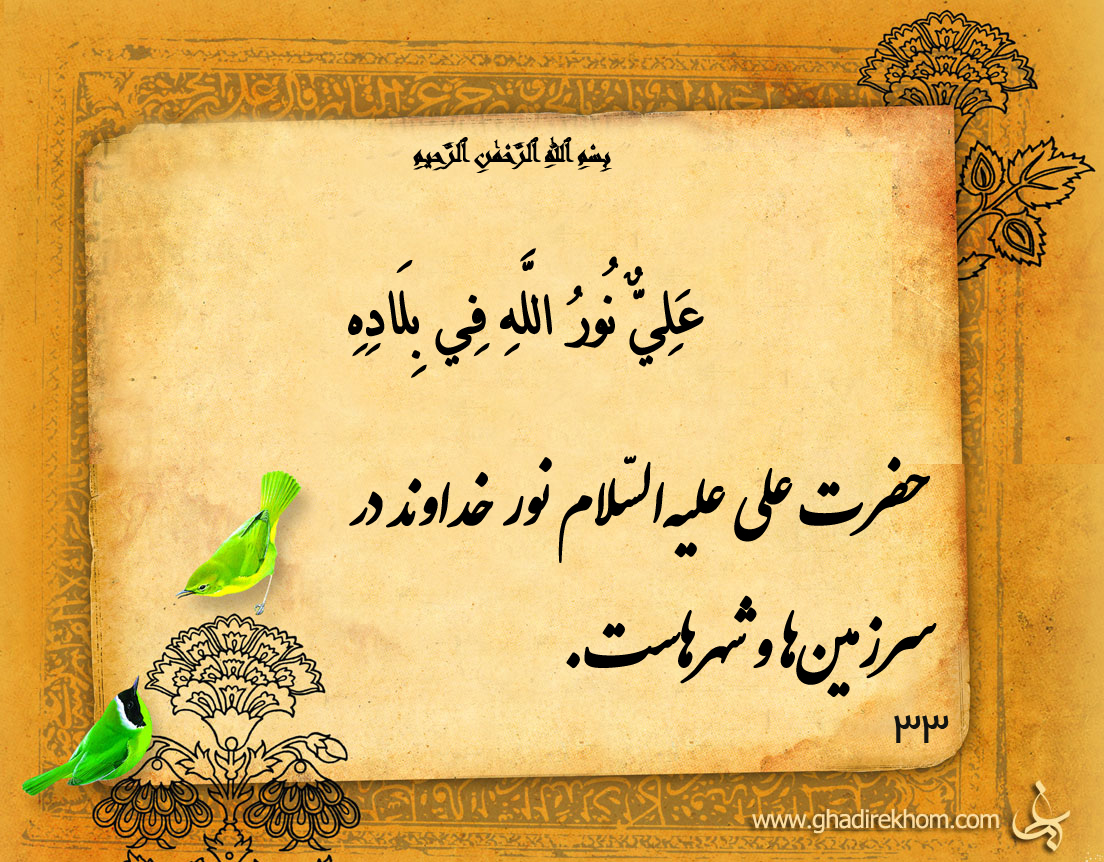 بِسْمِ ٱللَّٰهِ ٱلرَّحْمَٰنِ ٱلرَّحِيمِ
عَلِيٌّ نُورُ اللَّهِ فِي بِلَادِهِ
حضرت علی علیه‌السّلام نور خداوند در
سرزمین‌ها و شهرهاست.
۳۳
www.ghadirekhom.com